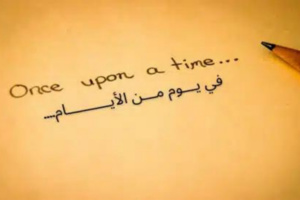 Once upon a time...
في يوم من الأيـــــام....